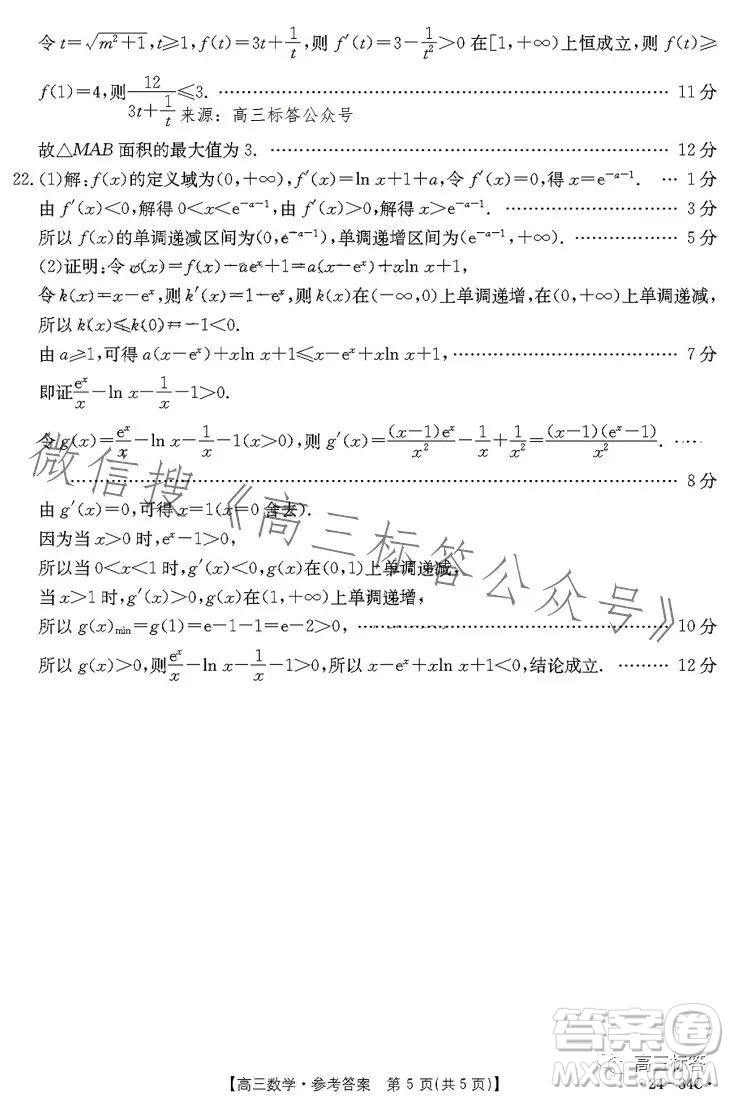 令t=√(m²+1),t≥1,f(t)=3t+1/t,则 f′(t)=3-1/t²>0 在[1,+∞)上恒成立,则 f(t)≥
f(1)=4,则12/(3t+1/t)≤3. …… 11分
来源：高三标答公众号
故△MAB 面积的最大值为 3. …… 12分
22.(1)解:f(x)的定义域为(0,+∞),f′(x)=ln x+1+a,令 f′(x)=0,得x=e^(-a-1). … 1分
由 f′(x)<0,解得 0<x<e^(-a-1),由 f′(x)>0,解得 x>e^(-a-1). …… 3分
所以 f(x)的单调递减区间为(0,e^(-a-1)),单调递增区间为(e^(-a-1),+∞). …… 5分
(2)证明:令 φ(x)=f(x)-aeˣ+1=a(x-eˣ)+xln x+1,
令k(x)=x-eˣ,则k′(x)=1-eˣ,则k(x)在(-∞,0)上单调递增,在(0,+∞)上单调递减,
所以 k(x)≤k(0)=-1<0.
由 a≥1,可得 a(x-eˣ)+xln x+1≤x-eˣ+xln x+1, …… 7分
即证eˣ/x-ln x-1/x-1>0.
令g(x)=eˣ/x-ln x-1/x-1(x>0),则 g′(x)=(x-1)eˣ/x²-1/x+1/x²=(x-1)(eˣ-1)/x². ……
…… 8分
由 g′(x)=0,可得 x=1(x=0 舍去).
因为当 x>0 时,eˣ-1>0,
所以当 0<x<1 时,g′(x)<0,g(x)在(0,1)上单调递减,
当 x>1 时,g′(x)>0,g(x)在(1,+∞)上单调递增,
所以 g(x)min=g(1)=e-1-1=e-2>0, …… 10分
所以 g(x)>0,则eˣ/x-ln x-1/x-1>0,所以 x-eˣ+xln x+1<0,结论成立. …… 12分
微信搜《高三标答公众号》
答案卷
MXQE.COM
高三标答
【高三数学·参考答案 第 5 页(共 5 页)】
24-34C